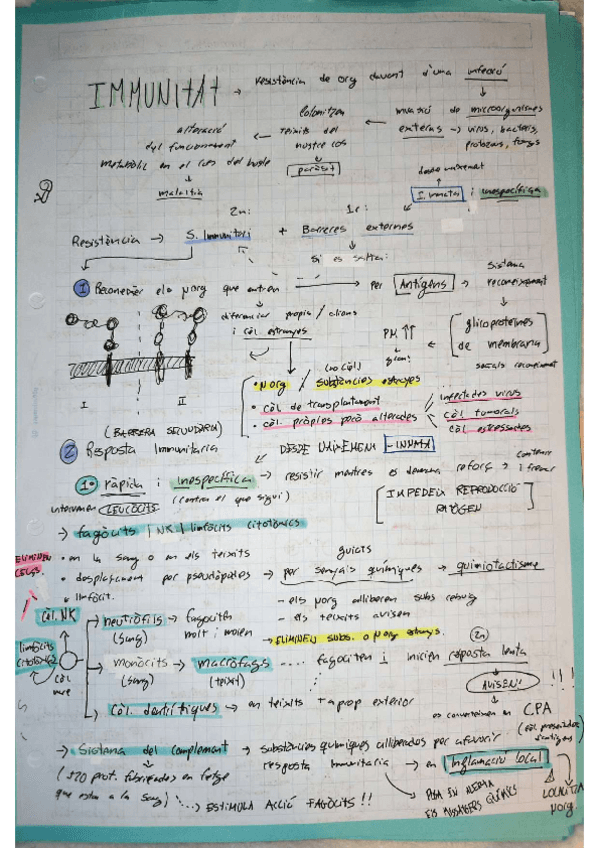 IMMUNITAT → resistència de org davant d'una infecció
invasió de microorganismes
externs → virus, bacteris,
protozous, fongs
colonitzen
teixits del
nostre cos
paràsit
alteració
del funcionament
metabòlic en el cos del hoste
malaltia
I. innata i inespecífica
2n: 1r:
Resistència → S. Immunitari + Barreres externes
Si es salten:
1 Reconèixer els µorg que entren → per Antígens → Sistema
reconeixement
glicoproteïnes
de membrana
PM ↑↑
diferenciar propis / aliens
i cèl. estranyes
(no cèl)
• µorg / substàncies estranyes
• cèl. de transplantament
• cèl. pròpies però alterades
infectades virus
cèl. tumorals
cèl. estressades
I II
(BARRERA SECUNDÀRIA)
2 Resposta Immunitaria
DESDE NAIXEMENT - INNATA
1º ràpida i inespecífica → resistir mentres es demana reforç
(contra el que sigui)
contenir
i frenar
IMPEDEIX REPRODUCCIÓ
PATÒGEN
intervenen LEUCÒCITS
→ fagòcits | NK | limfòcits citotòxics
ELIMINEN
• en la sang o en els teixits
• desplaçament per pseudòpodes → per senyals químiques → quimiotactisme
guiats
- els µorg alliberen subs rebuig
- els teixits avisen
limfòcit.
Cèl. NK
limfòcits
citotòxics
cèl
mare
neutròfils → fagociten
(sang) molt i moren
→ ELIMINEN subs. o µorg estranys.
monòcits → macròfags .... fagociten i inicien resposta lenta
(sang) (teixit)
2n
AVISEN! !!!
Cèl. dentrítiques → en teixits + aprop exterior
es converteixen en CPA
(cèl presentadores
d'antígens)
→ Sistema del complement → substàncies químiques alliberades per afavorir
resposta immunitaria → en Inflamació local
(+20 prot. fabricades en fetge
que estan a la sang) ....→ ESTIMULA ACCIÓ FAGÒCITS !!
POSA EN ALERTA
ELS MISSATGERS QUÍMICS
LOCALITZA
µorg.